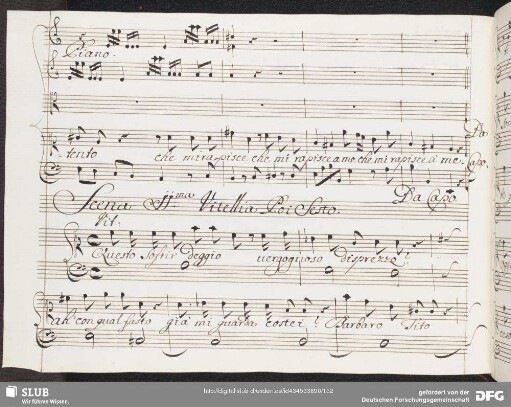 Piano.
Da
tento che mi rapisce che mi rapisce a me, che mi rapisce a me.
Capo.
Da Capo
Scena IIma Vitellia Poi Sesto.
Vit:
Questo soffrir deggio vergognoso disprezzo!
ah con qual fasto già mi guarda costei! Barbaro Tito
SLUB
Wir führen Wissen.
gefördert von der
Deutschen Forschungsgemeinschaft
DFG